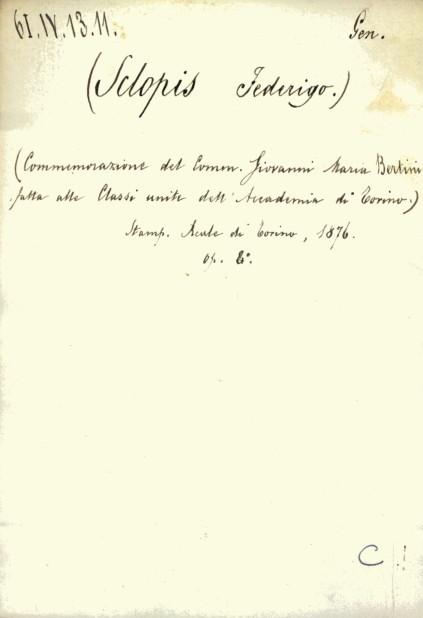 61.IV.13.11. Gen.
(Sclopis Federigo.)
(Commemorazione del Comm. Giovanni Maria Bertini
fatta alle Classi unite dell'Accademia di Torino.)
Stamp. Reale di Torino, 1876.
op. 8º.
C